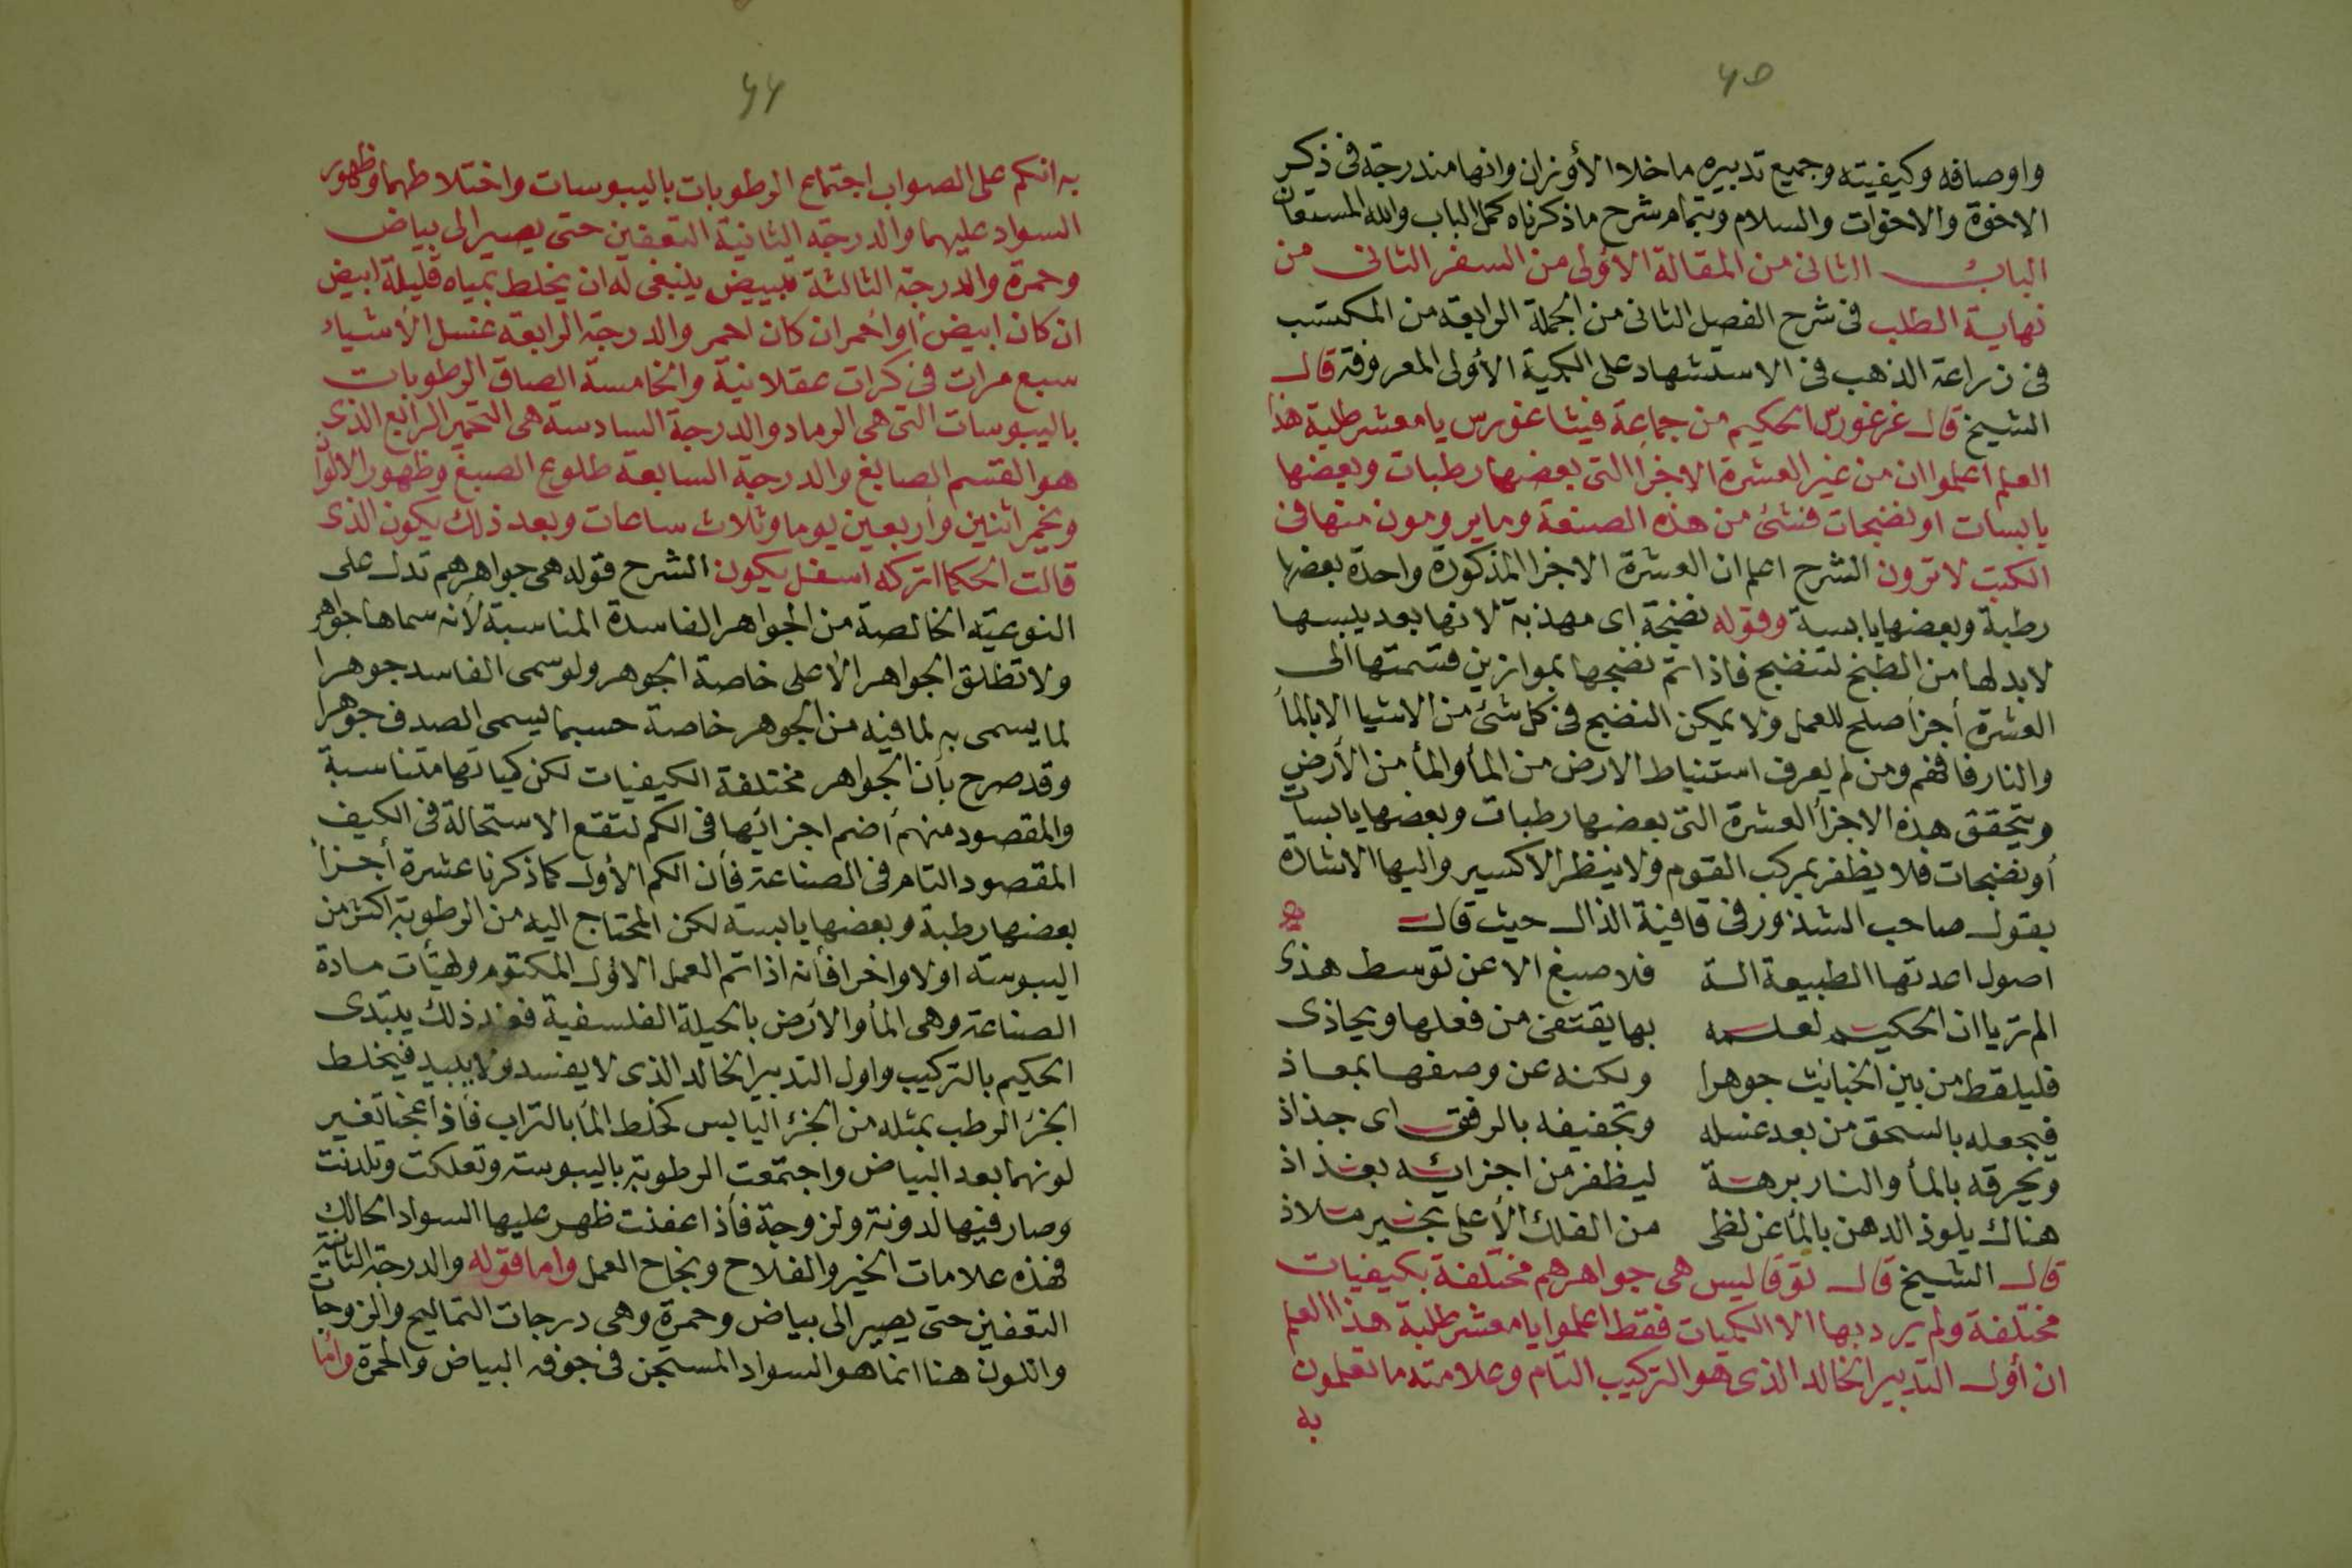 ٤٥
واوصافه وكيفيته وجميع تدبيره ماخلا الأوزان وانها مندرجة فى ذكر
الاخوة والاخوات والسلام وبتمام شرح ماذكرناه كمل الباب والله المستعان
الباب الثانى من المقالة الاؤلى من السفر الثانى من
نهاية الطلب فى شرح الفصل الثانى من الجملة الرابعة من المكتسب
فى زراعة الذهب فى الاستشهاد على الكمية الأولى المعروفة قال
الشيخ قال غرغورس الحكيم من جماعة فيثاغورس يا معشر طلبة هذا
العلم اعلموا ان من غير العشرة الاجزأ التى بعضها رطبات وبعضها
يابسات او نضجات فنشئ من هذه الصنعة وما يرومون منها فى
الكتب لا ترون الشرح اعلم ان العشرة الاجزأ المذكورة واحدة بعضها
رطبة وبعضها يابسة وقوله نضجة اى مهذبة لانها بعد يبسها
لابد لها من الطبخ لتنضج فاذا تم نضجها بموازين قسمتها الى
العشرة أجزأ صلح للعمل ولا يمكن النضج فى كل شئ من الاشيا الا بالمأ
والنار فافهم ومن لم يعرف استنباط الارض من المأ والمأ من الأرض
ويتحقق هذه الاجزأ العشرة التى بعضها رطبات وبعضها يابسات
أو نضجات فلا يظفر بمركب القوم ولا ينظر الاكسير واليها الاشارة
بقول صاحب الشذور فى قافية الذال حيث قال
اصول اعدتها الطبيعة الة فلا صبغ الا عن توسط هذى
الم تر يا ان الحكيم لعلمه بها يقتفى من فعلها ويحاذى
فليلقط من بين الخبايث جوهرا ويكنه عن وصفها بمعاذ
فيجعله بالسحق من بعد غسله وتجفيفه بالرفق اى جذاذ
ويحرقه بالمأ والنار برهة ليظفر من اجزائه بغذاذ
هناك يلوذ الدهن بالمأ عن لظى من الفلك الأعلى بخير ملاذ
قال الشيخ قال توقا ليس هى جواهرهم مختلفة بكيفيات
مختلفة ولم يرد بها الا الكميات فقط اعلموا يا معشر طلبة هذا العلم
ان أول التدبير الخالد الذى هو التركيب التام وعلامته ما تعلمون
به
٤٦
به انكم على الصواب اجتماع الرطوبات باليبوسات واختلاطهما وظهور
السواد عليهما والدرجة الثانية التعفين حتى يصير الى بياض
وحمرة والدرجة الثالثة تبييض ينبغى له ان يخلط بمياه قليلة ابيض
ان كان ابيض أو احمر ان كان احمر والدرجة الرابعة غسل الأشياء
سبع مرات فى كرات عقلانية والخامسة الصاق الرطوبات
باليبوسات التى هى الرماد والدرجة السادسة هى التخمير الرابع الذى
هو القسم الصابغ والدرجة السابعة طلوع الصبغ وظهور الالوان
ويخمر اثنين وأربعين يوما وثلاث ساعات وبعد ذلك يكون الذى
قالت الحكما اتركه اسفل يكون الشرح قوله هى جواهرهم تدل على
النوعية الخالصة من الجواهر الفاسدة المناسبة لأنه سماها جواهر
ولا تطلق الجواهر الأعلى خاصة الجوهر ولو سمى الفاسد جوهرا
لما يسمى به لما فيه من الجوهر خاصة حسبما يسمى الصدف جوهرا
وقد صرح بأن الجواهر مختلفة الكيفيات لكن كمياتها متناسبة
والمقصود منهم أضم اجزائها فى الكم لتقع الاستحالة فى الكيف
المقصود التام فى الصناعة فأن الكم الأول كما ذكرنا عشرة أجزأ
بعضها رطبة وبعضها يابسة لكن المحتاج اليه من الرطوبة اكثر من
اليبوسة اولا واخرا فأنه اذا تم العمل الاؤل المكتوم ولهيئات مادة
الصناعة وهى المأ والأرض بالحيلة الفلسفية فعند ذلك يبتدى
الحكيم بالتركيب واول التدبير الخالد الذى لا يفسد ولا يبيد فيخلط
الجزء الرطب بمثله من الجزء اليابس كخلط المأ بالتراب فأذا عجنا تغير
لونهما بعد البياض واجتمعت الرطوبة باليبوسة وتعلكت وتلدنت
وصار فيها لدونة ولزوجة فأذا عفنت ظهر عليها السواد الحالك
فهذه علامات الخير والفلاح ونجاح العمل واما قوله والدرجة الثانية
التعفين حتى يصير الى بياض وحمرة وهى درجات التماليح والزوجات
واللون هنا انما هو السواد المستجن فى جوفه البياض والحمرة وأما